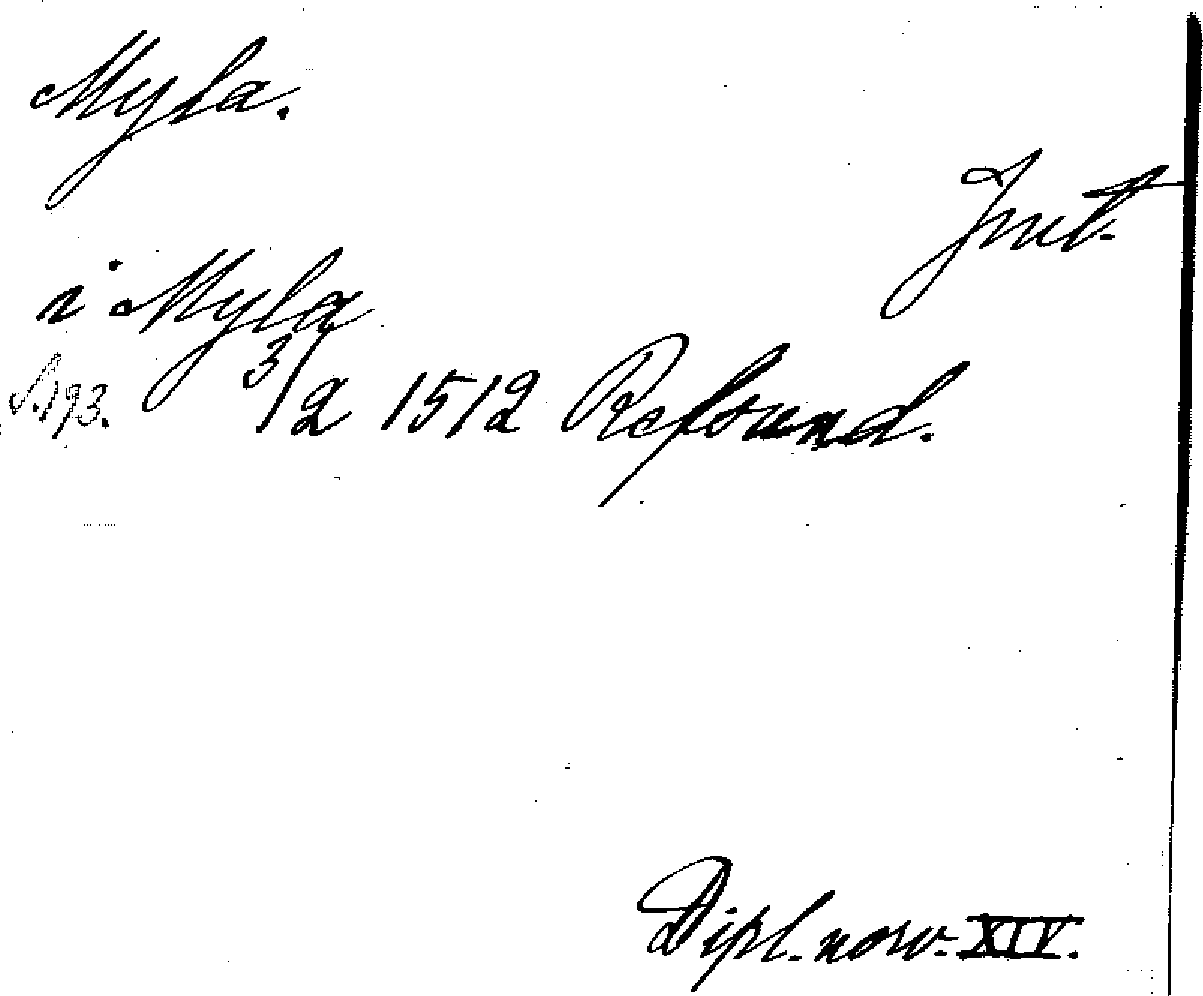 Myla.
Jmt.
i Myla
S. 193. 3/2 1512 Refsund.
Dipl. norv. XIV.